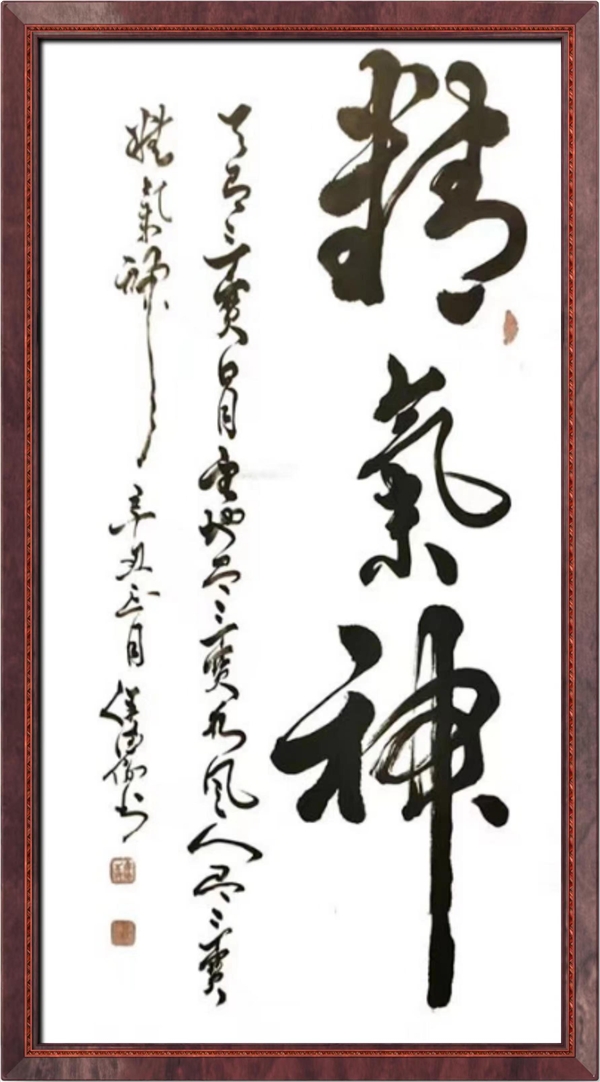 精氣神
天有三寶日月星地有三寶水風人有三寶
精氣神 辛丑三月 书